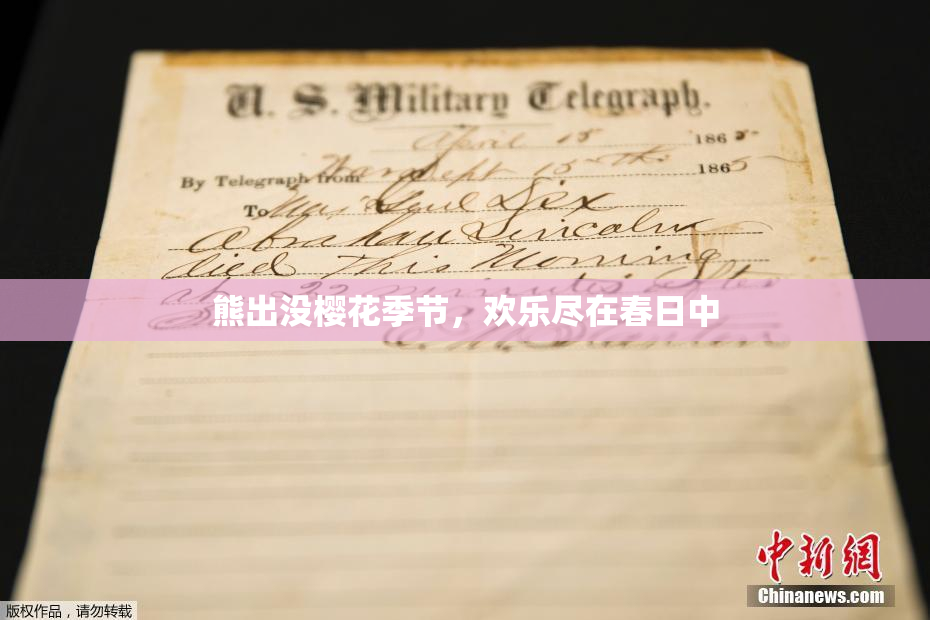 U. S. Military Telegraph.
April 15 1865
By Telegraph from War Dept 15th 1865
To Maj Genl Dix
Abraham Lincoln
died This Morning
at 22 minutes after
熊出没樱花季节，欢乐尽在春日中
E. M. Stanton
中新网
Chinanews.com
版权作品，请勿转载